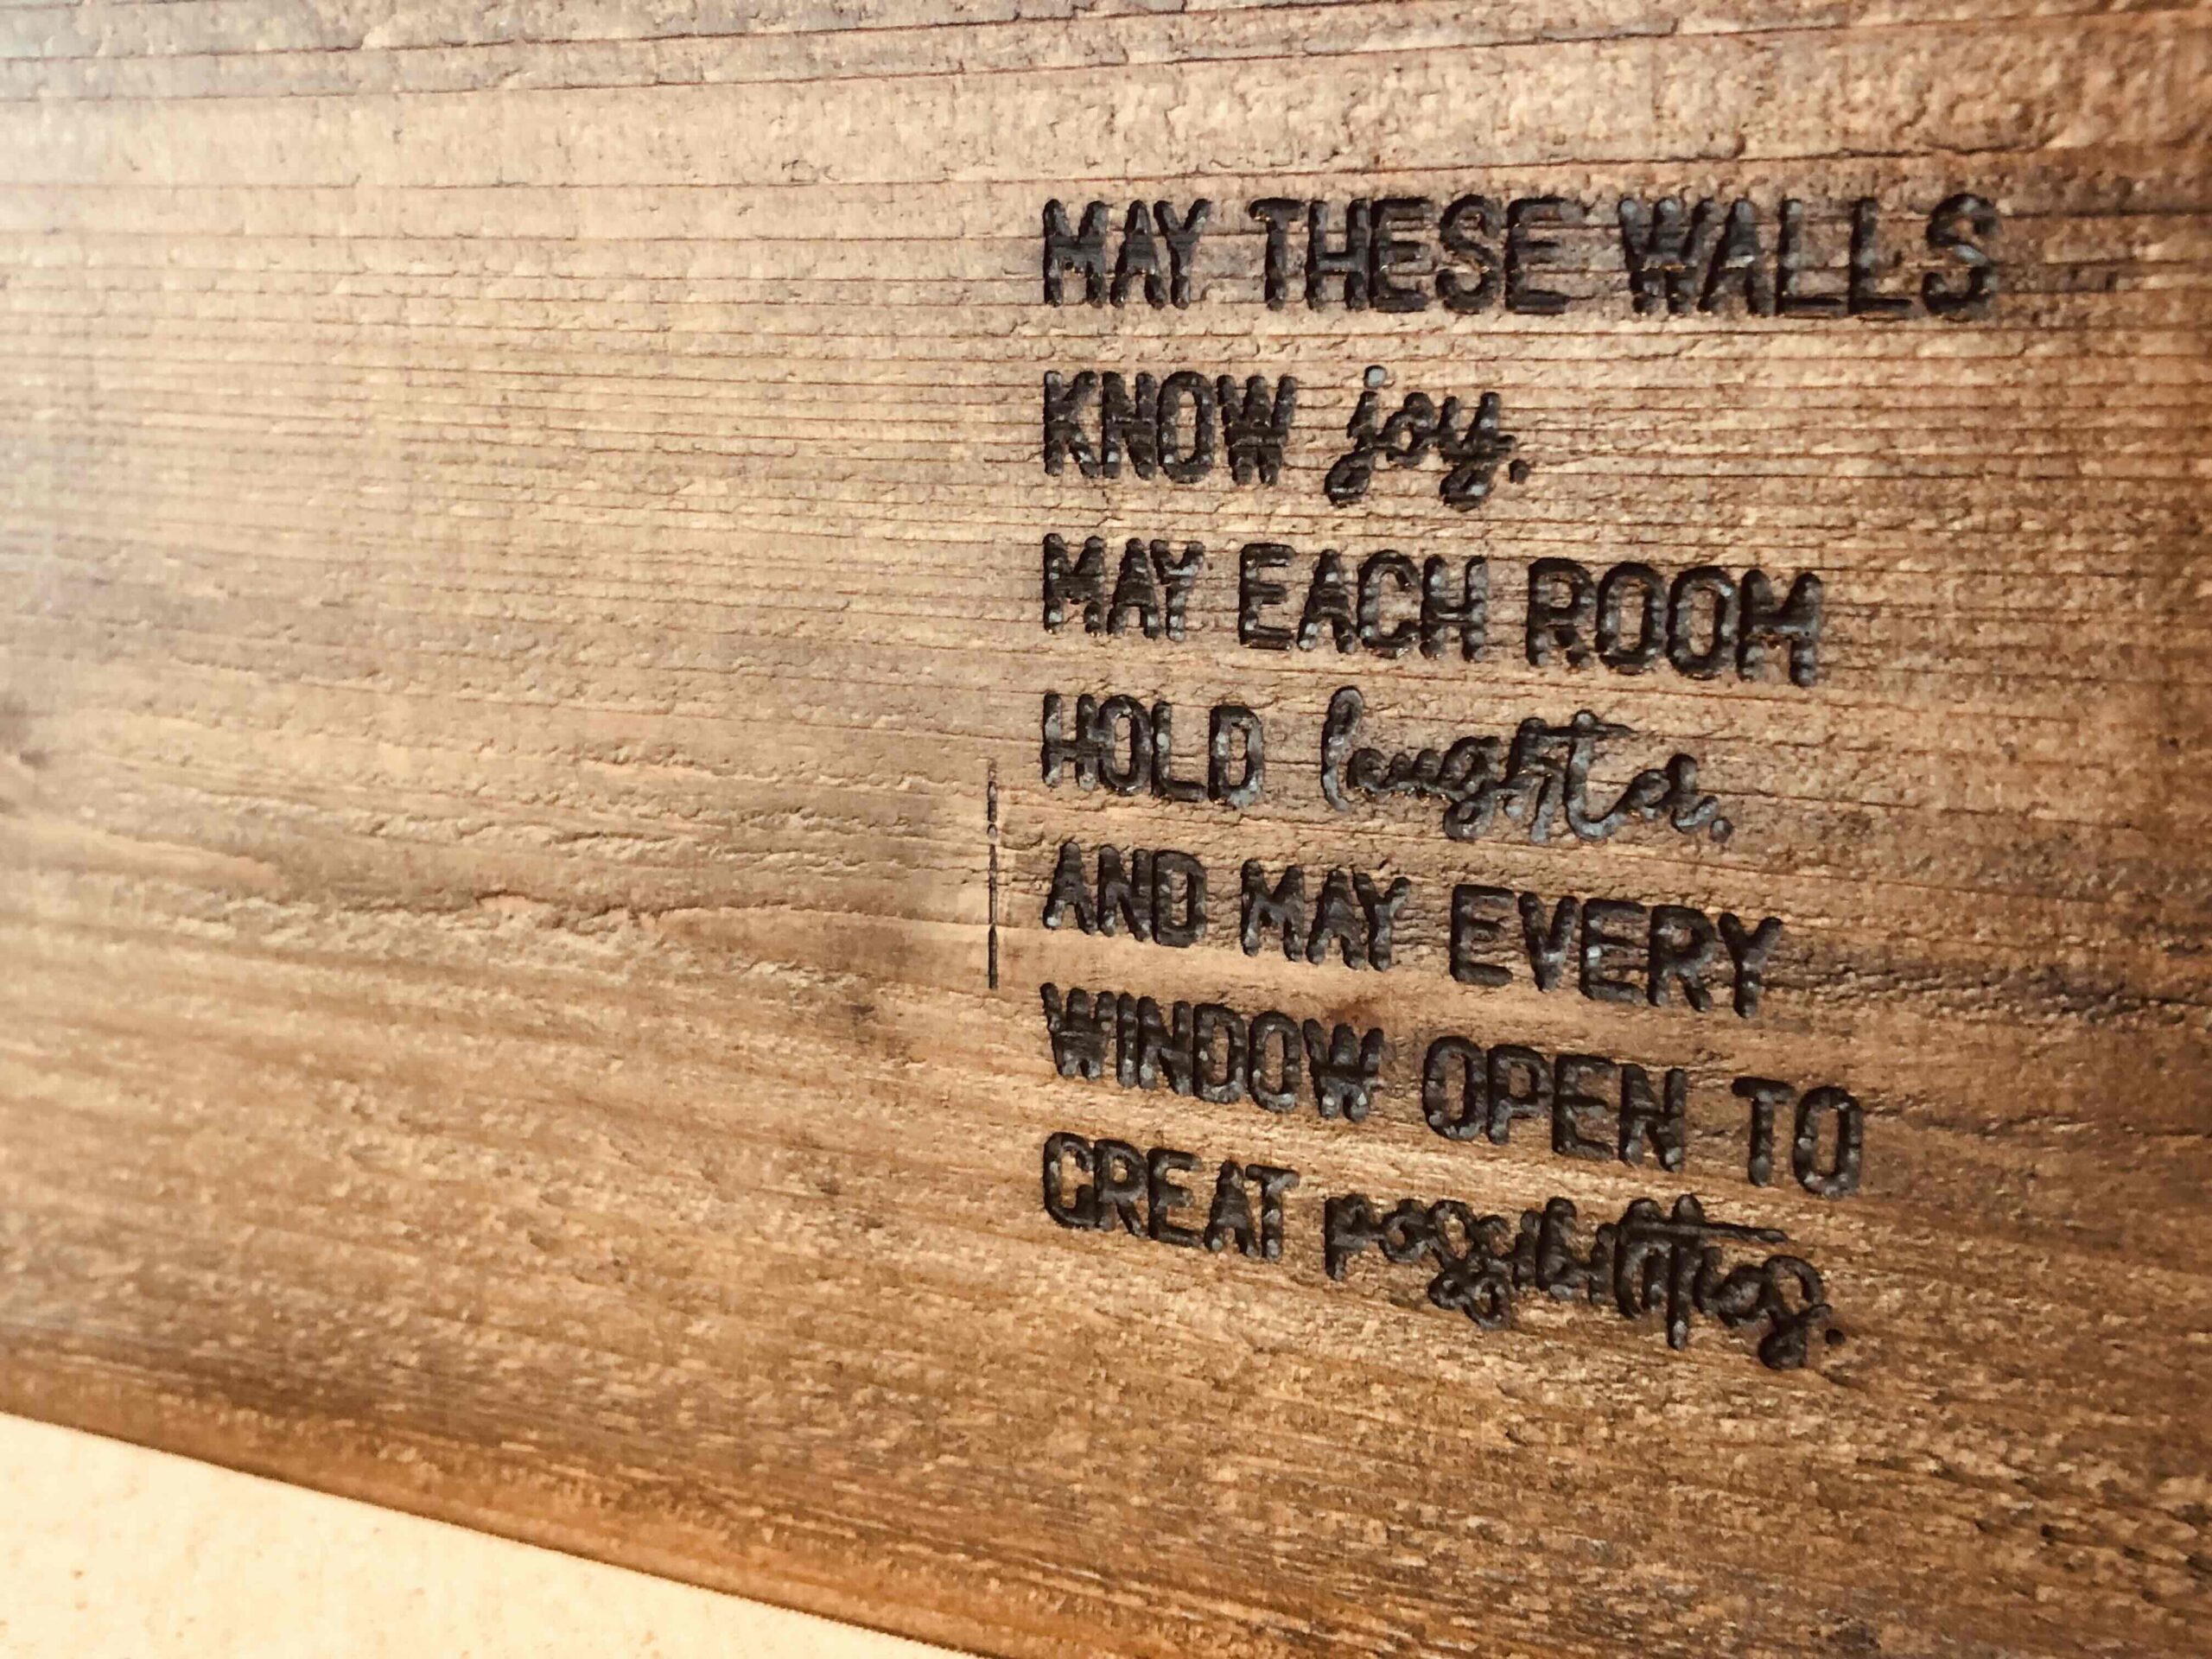 MAY THESE WALLS
KNOW joy.
MAY EACH ROOM
HOLD laughter.
AND MAY EVERY
WINDOW OPEN TO
GREAT possibilities.